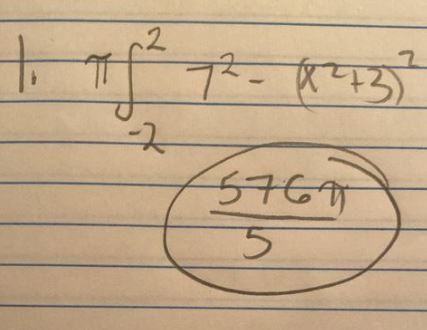 1. π∫_{-2}^{2} 7² - (x²+3)²
576π/5